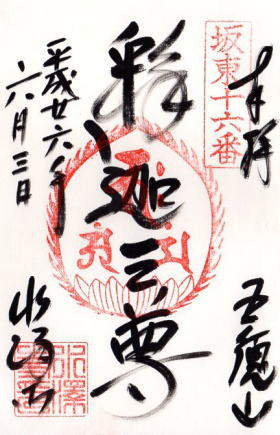 奉拝
坂東十六番
五徳山
釋迦三尊
平成廿六年
六月三日
水澤寺